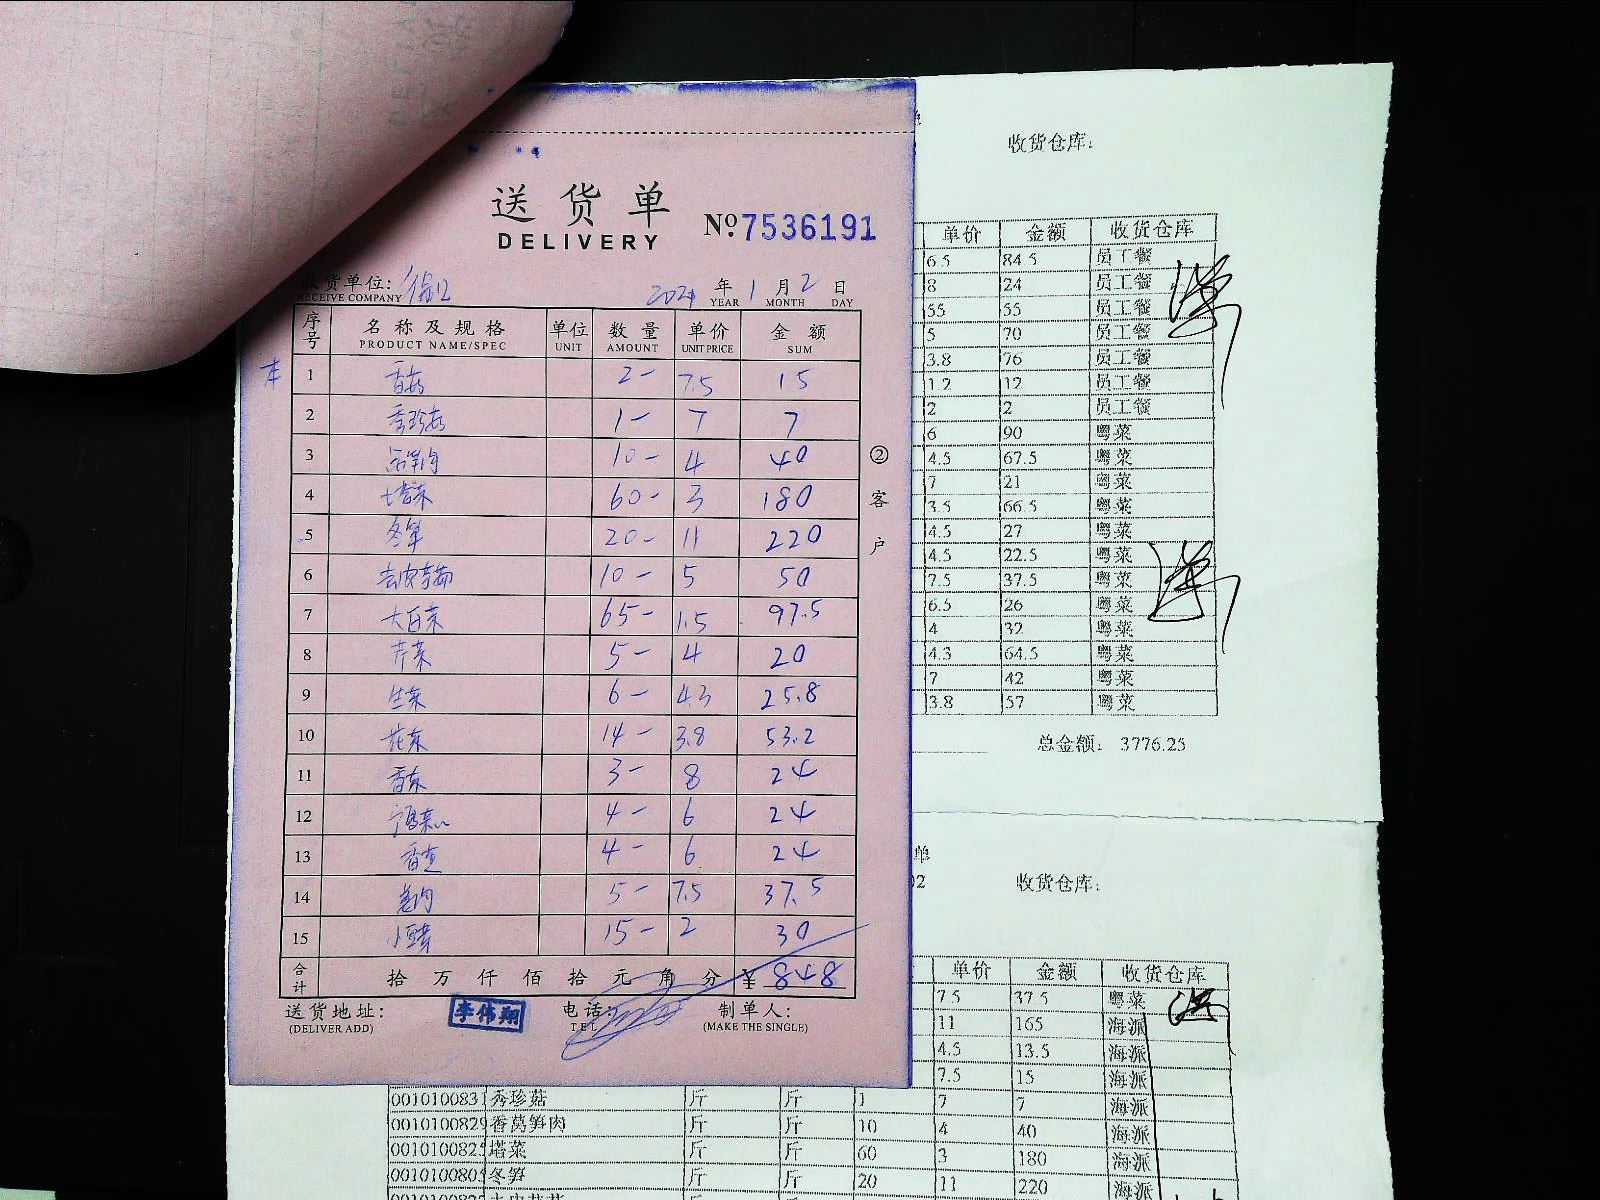 送货单
DELIVERY
№ 7536191
收货单位:
RECEIVE COMPANY
年 1 月 2 日
YEAR MONTH DAY
序号 名称及规格 单位 数量 单价 金额
PRODUCT NAME/SPEC UNIT AMOUNT UNIT PRICE SUM
1 香菇 2- 7.5 15
2 秀珍菇 1- 7 7
3 10- 4 40
4 塔菜 60- 3 180
5 冬笋 20- 11 220
6 10- 5 50
7 大白菜 65- 1.5 97.5
8 芹菜 5- 4 20
9 生菜 6- 4.3 25.8
10 花菜 14- 3.8 53.2
11 香菜 3- 8 24
12 4- 6 24
13 4- 6 24
14 5- 7.5 37.5
15 15- 2 30
合计 拾 万 仟 佰 拾 元 角 分 ¥ 848
送货地址:
(DELIVER ADD)
李伟翔
电话:
TEL
制单人:
(MAKE THE SINGLE)
② 客户
收货仓库:
单价 金额 收货仓库
6.5 84.5 员工餐
8 24 员工餐
55 55 员工餐
5 70 员工餐
3.8 76 员工餐
1.2 12 员工餐
2 2 员工餐
6 90 粤菜
4.5 67.5 粤菜
7 21 粤菜
3.5 66.5 粤菜
4.5 27 粤菜
4.5 22.5 粤菜
7.5 37.5 粤菜
6.5 26 粤菜
4 32 粤菜
4.3 64.5 粤菜
7 42 粤菜
3.8 57 粤菜
总金额: 3776.25
单
02 收货仓库:
单价 金额 收货仓库
7.5 37.5 粤菜
11 165 海派
4.5 13.5 海派
7.5 15 海派
0010100831 秀珍菇 斤 斤 1 7 7 海派
0010100829 香莴笋肉 斤 斤 10 4 40 海派
001010082 塔菜 斤 斤 60 3 180 海派
001010080 冬笋 斤 斤 20 11 220 海派